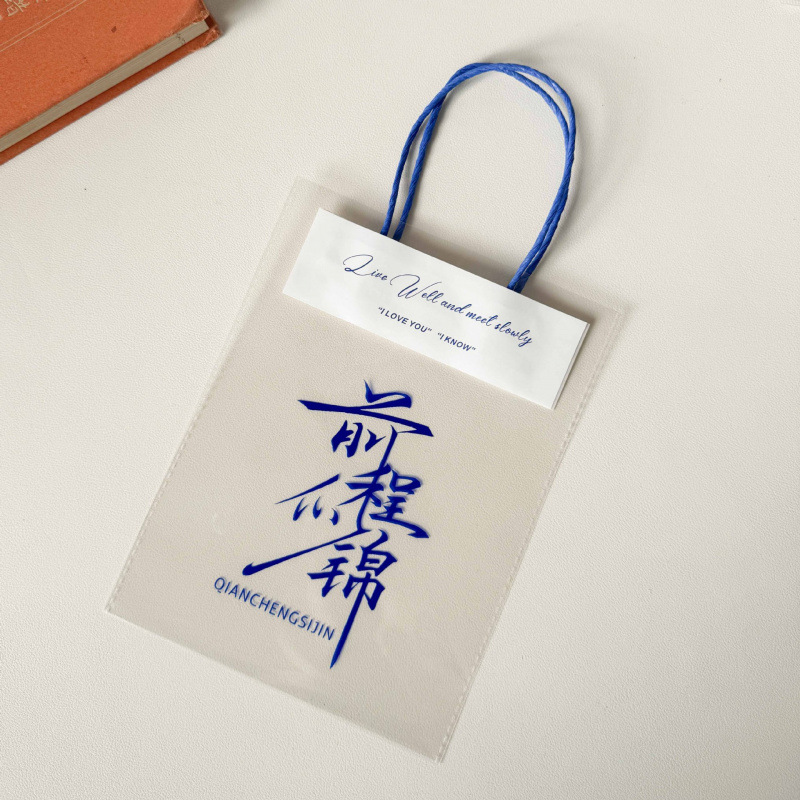 Live Well and meet slowly
"I LOVE YOU" "I KNOW"
前程似锦
QIANCHENGSIJIN